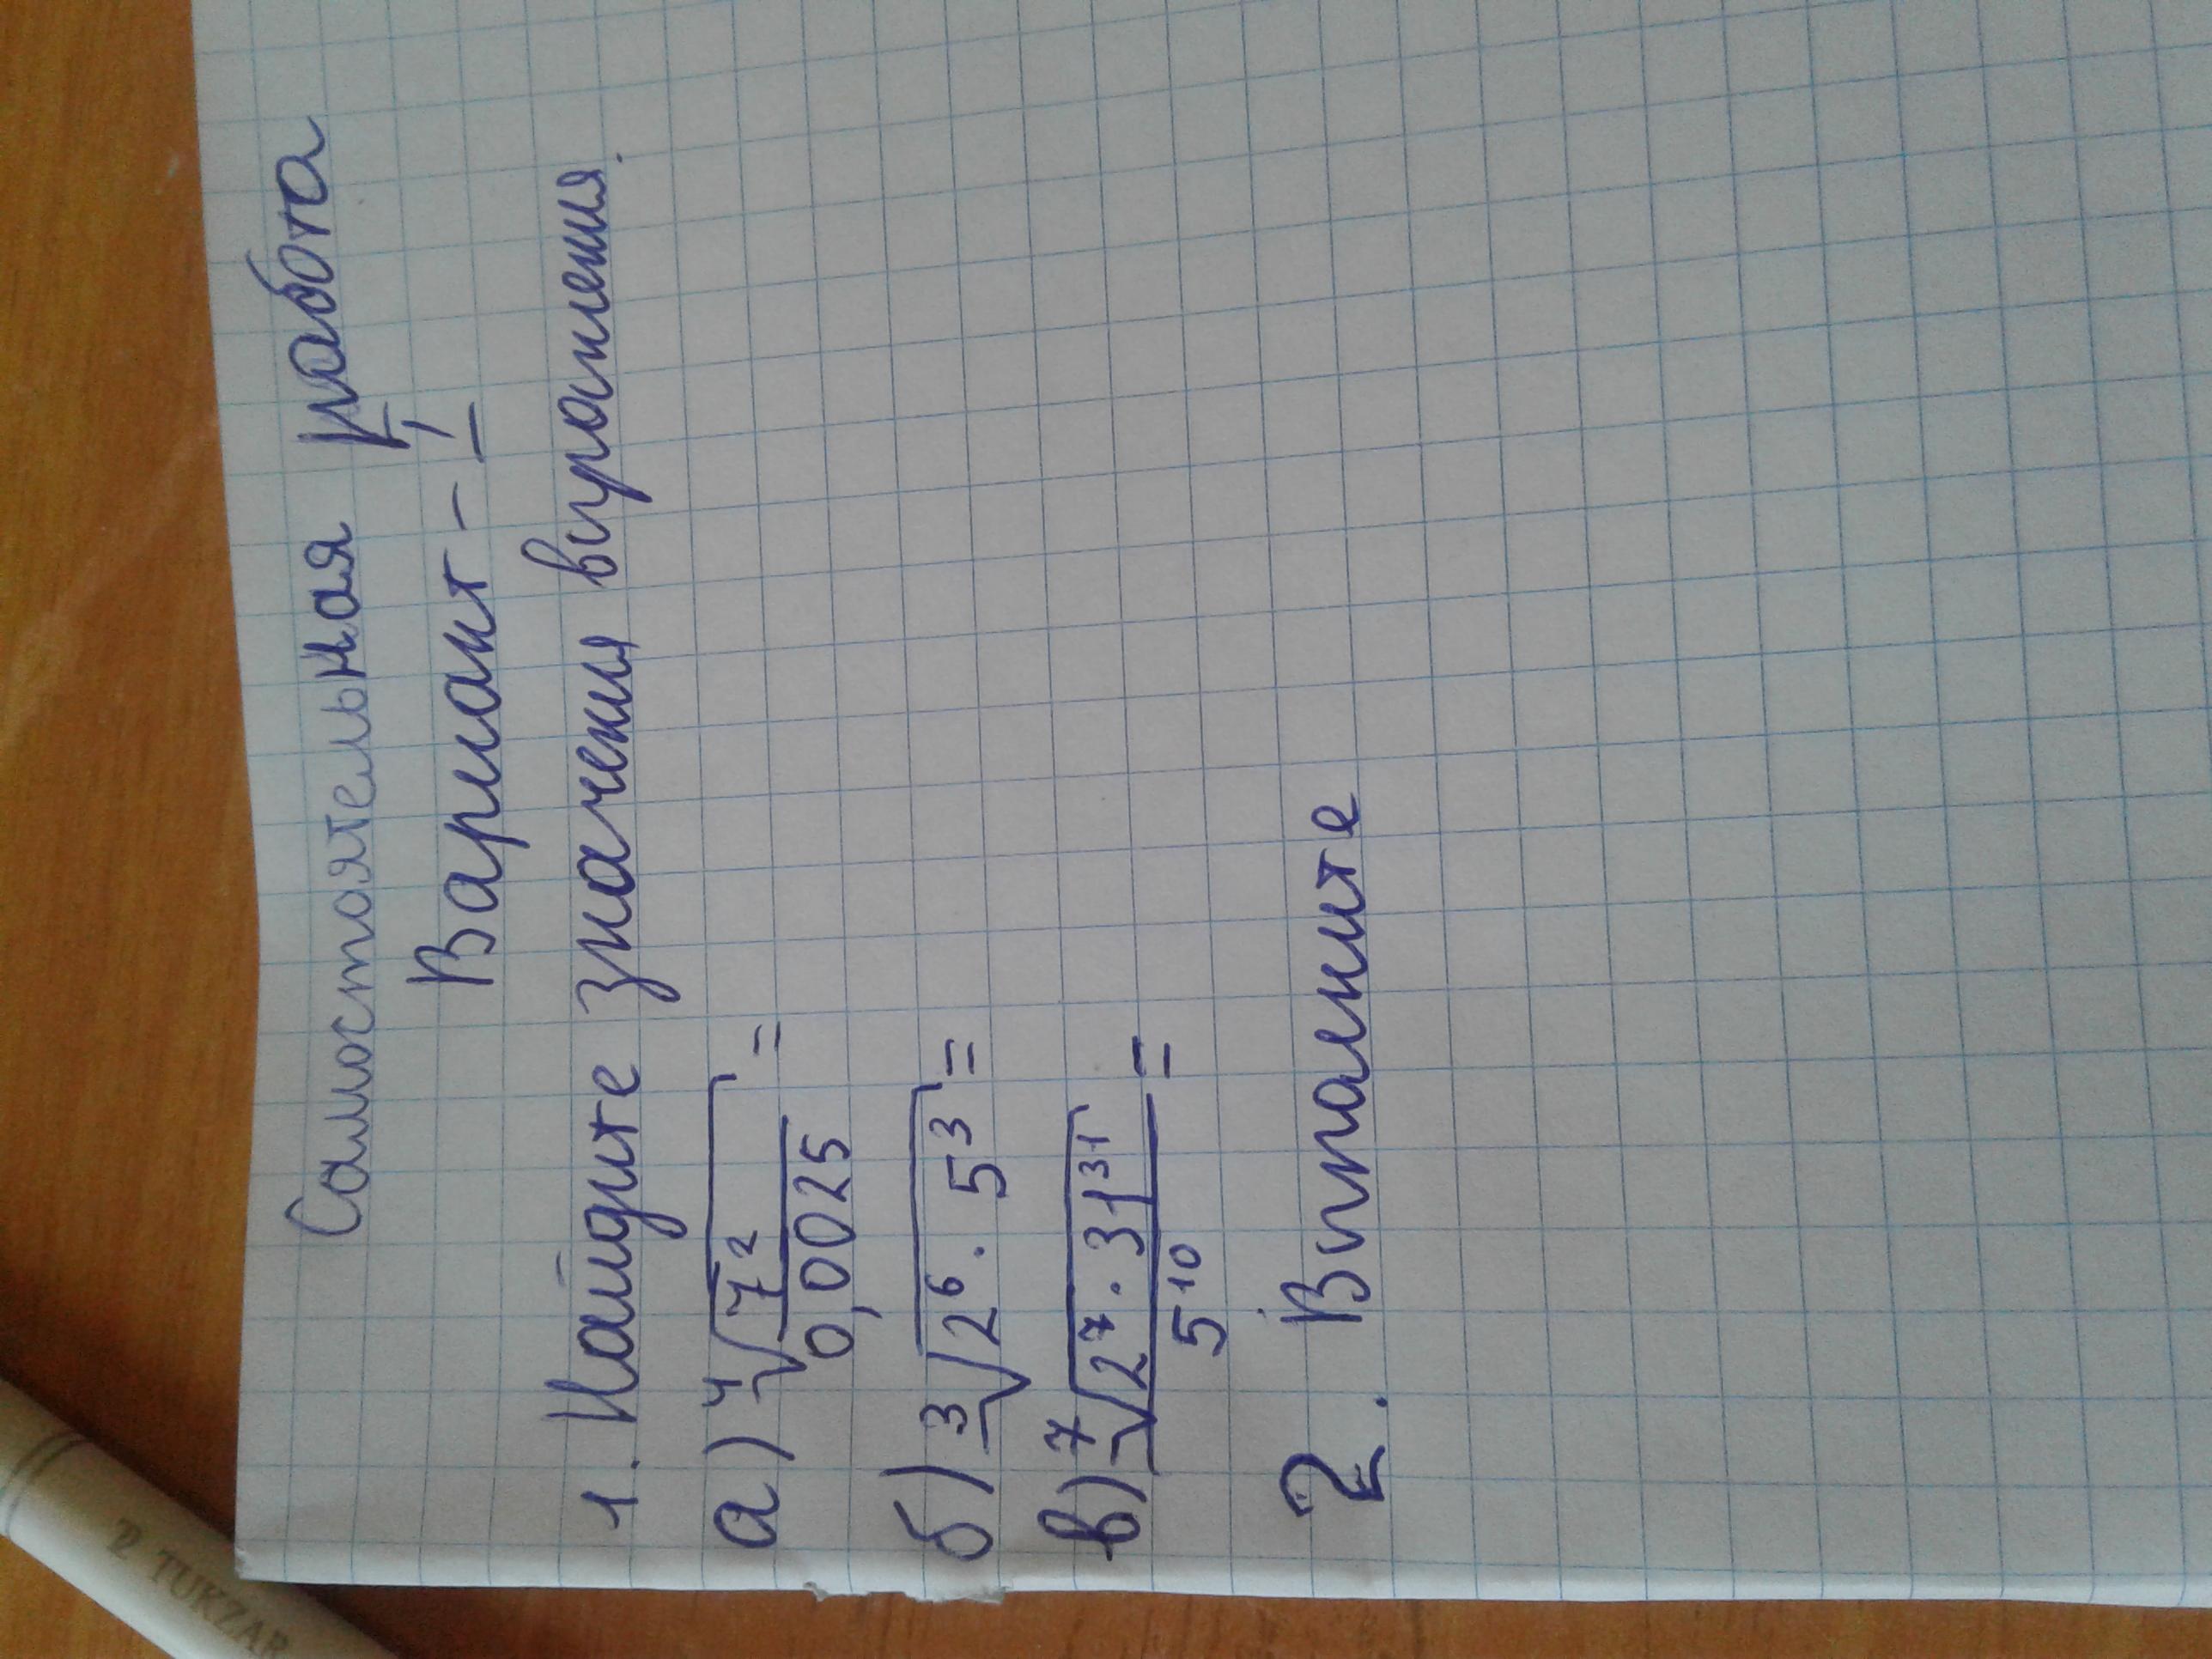 Самостоятельная работа
Вариант - I
1. Найдите значения выражения.
а) ⁴√(7²/0,0025) =
б) ³√(2⁶ · 5³) =
в) ⁷√(2⁷ · 31³¹)/5¹⁰ =
2. Выполните
TUKZAR